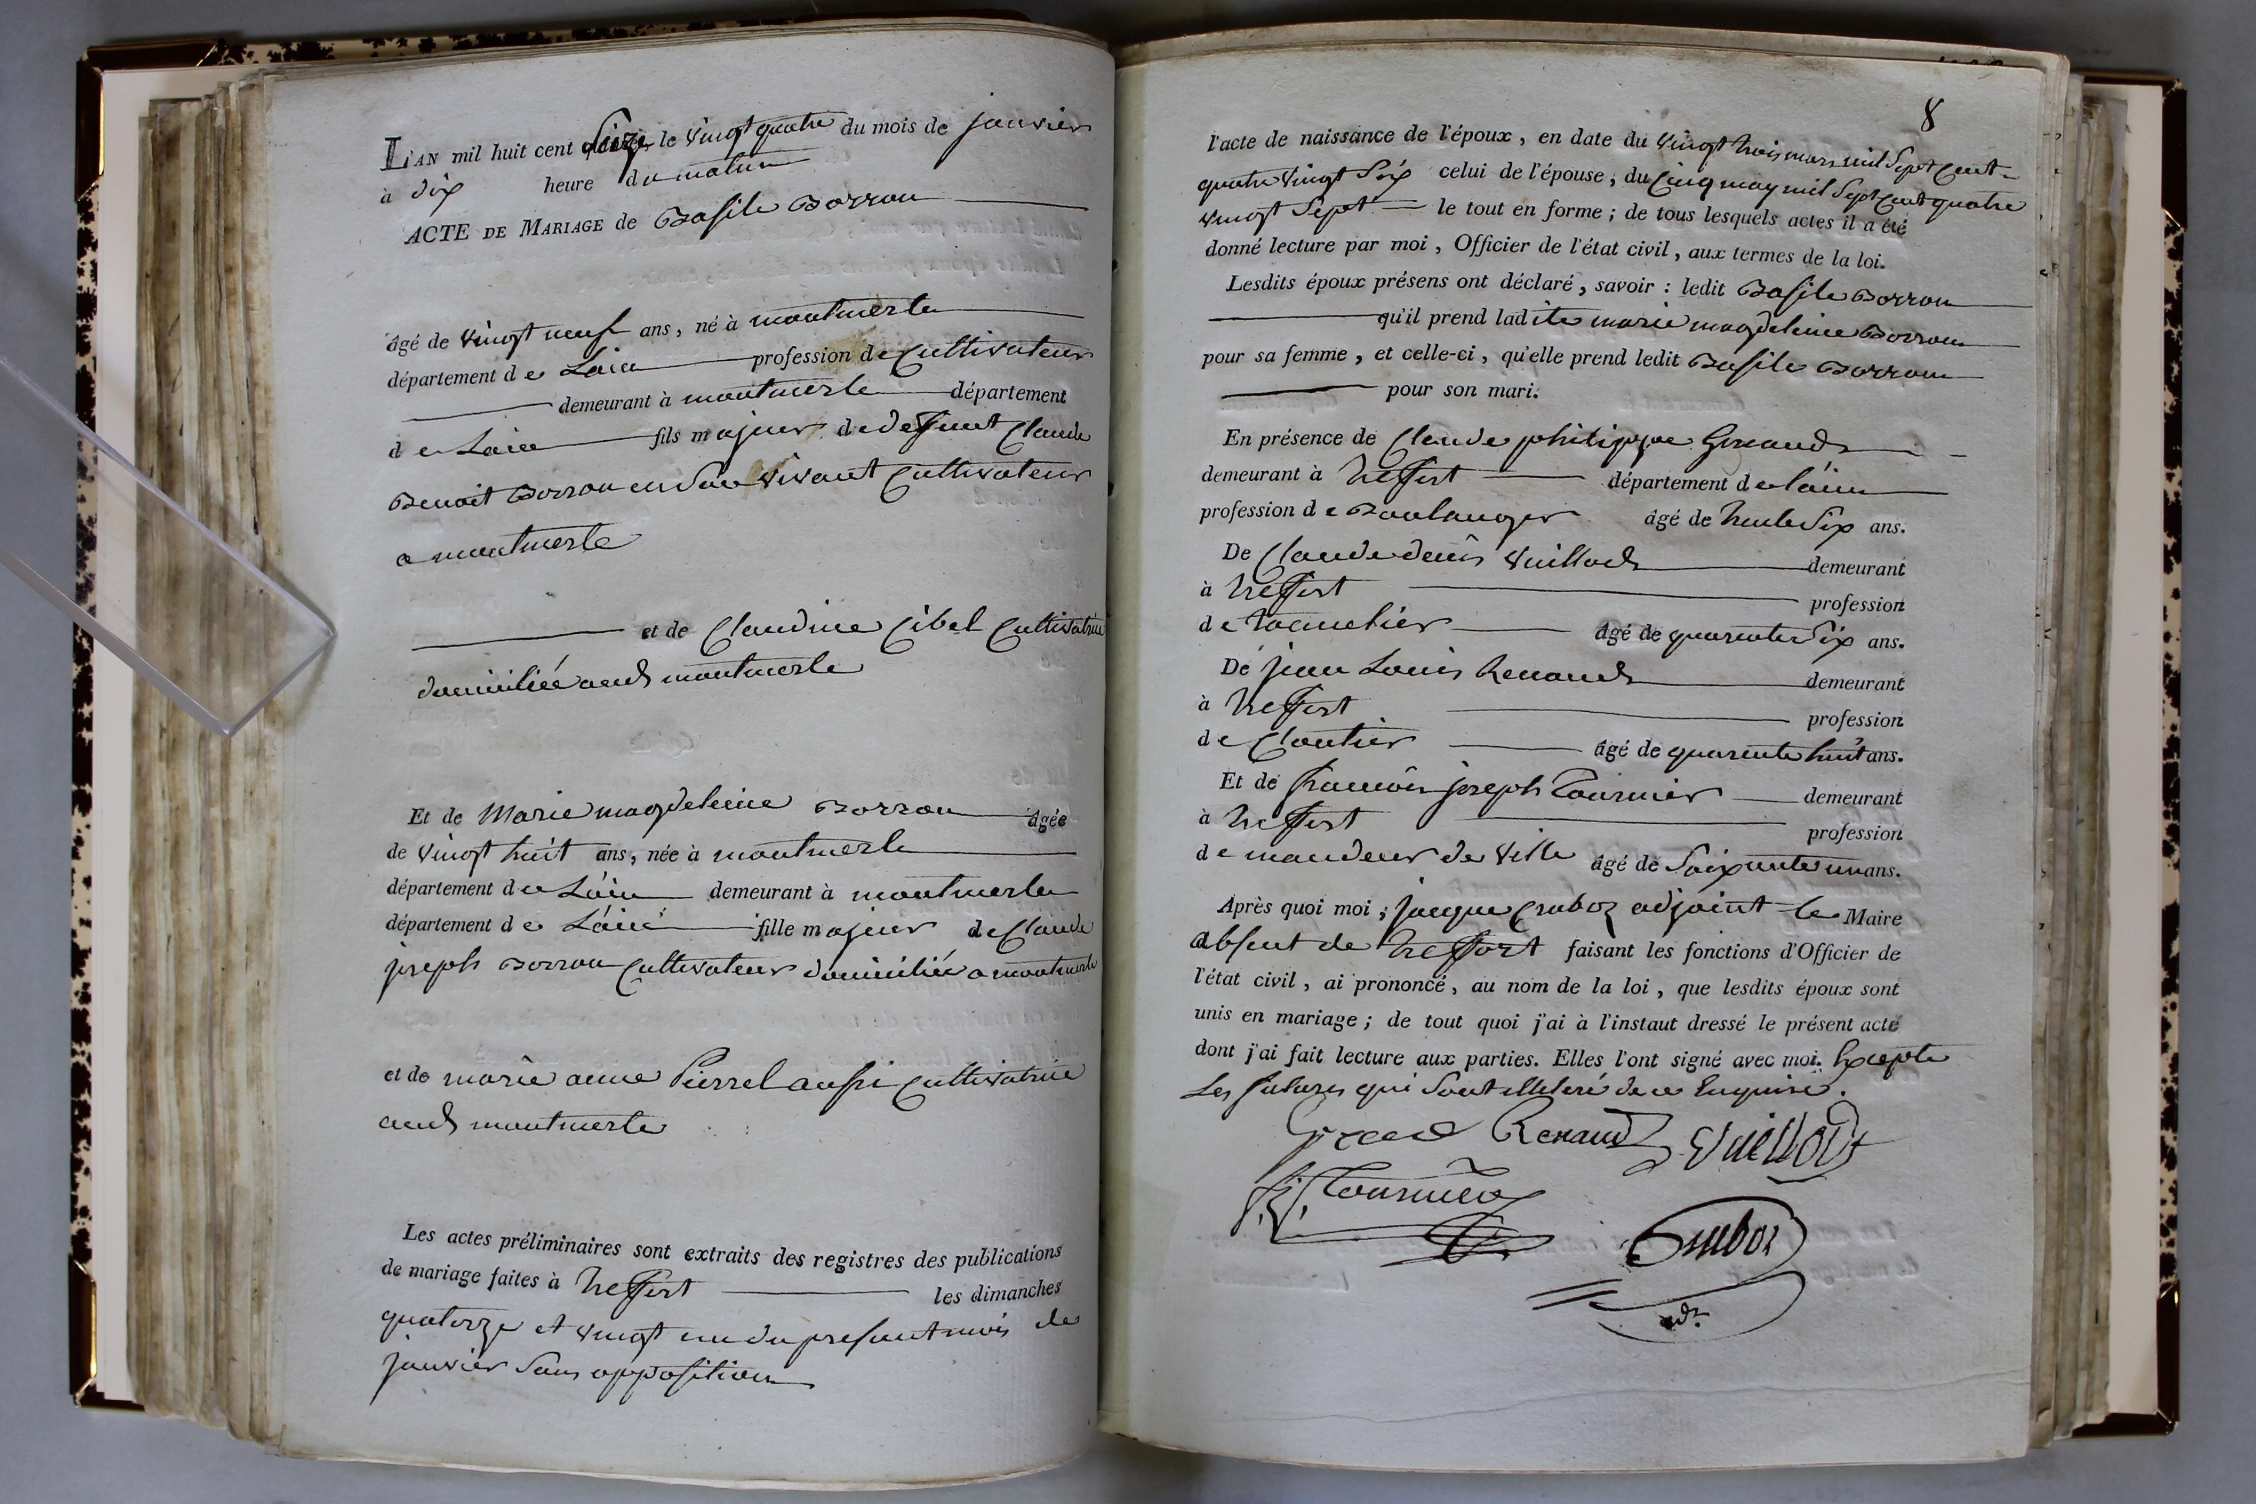 L'AN mil huit cent Seize, le vingt quatre du mois de janvier
à dix heure du matin
ACTE DE MARIAGE de Basile Borron
âgé de vingt neuf ans, né à montmerle
département de Lain profession de Cultivateur
demeurant à montmerle département
de Lain fils majeur de deffunt Claude
Benoit Borron en Son vivant Cultivateur
a montmerle
et de Claudine Cibel Cultivatrice
domiciliée aud montmerle
Et de Marie magdeleine Borron âgée
de vingt huit ans, née à montmerle
département de Lain demeurant à montmerle
département de Lain fille majeur de Claude
joseph Borron Cultivateur domiciliée a montmerle
et de marie anne Pierrel aussi Cultivatrice
aud montmerle
Les actes préliminaires sont extraits des registres des publications
de mariage faites à treffort les dimanches
quatorze et vingt un du present mois de
janvier Sans opposition
8
l'acte de naissance de l'époux, en date du vingt trois mars mil Sept Cent
quatre vingt Six celui de l'épouse, du Cinq may mil Sept Cent quatre
vingt Sept le tout en forme; de tous lesquels actes il a été
donné lecture par moi, Officier de l'état civil, aux termes de la loi.
Lesdits époux présens ont déclaré, savoir : ledit Basile Borron
qu'il prend ladite marie magdeleine Borron
pour sa femme, et celle-ci, qu'elle prend ledit Basile Borron
pour son mari.
En présence de Claude philippe
demeurant à treffort département de lain
profession de Boulanger âgé de trente Six ans.
De Claude denis Vuillod demeurant
à treffort profession
de âgé de quarante Six ans.
De jean Louis Renaud demeurant
à treffort profession
de Cloutier âgé de quarente huit ans.
Et de francois joseph Tournier demeurant
à treffort profession
de mandeur de Ville âgé de Soixante un ans.
Après quoi moi, jacque Cruboz adjoint le Maire
absent de treffort faisant les fonctions d'Officier de
l'état civil, ai prononcé, au nom de la loi, que lesdits époux sont
unis en mariage; de tout quoi j'ai à l'instaut dressé le présent acte
dont j'ai fait lecture aux parties. Elles l'ont signé avec moi. Excepte
Les futures qui Sont illiteré de ce Enquise.
Renaud Vuillod
f. j. Tournier
Cruboz
adt